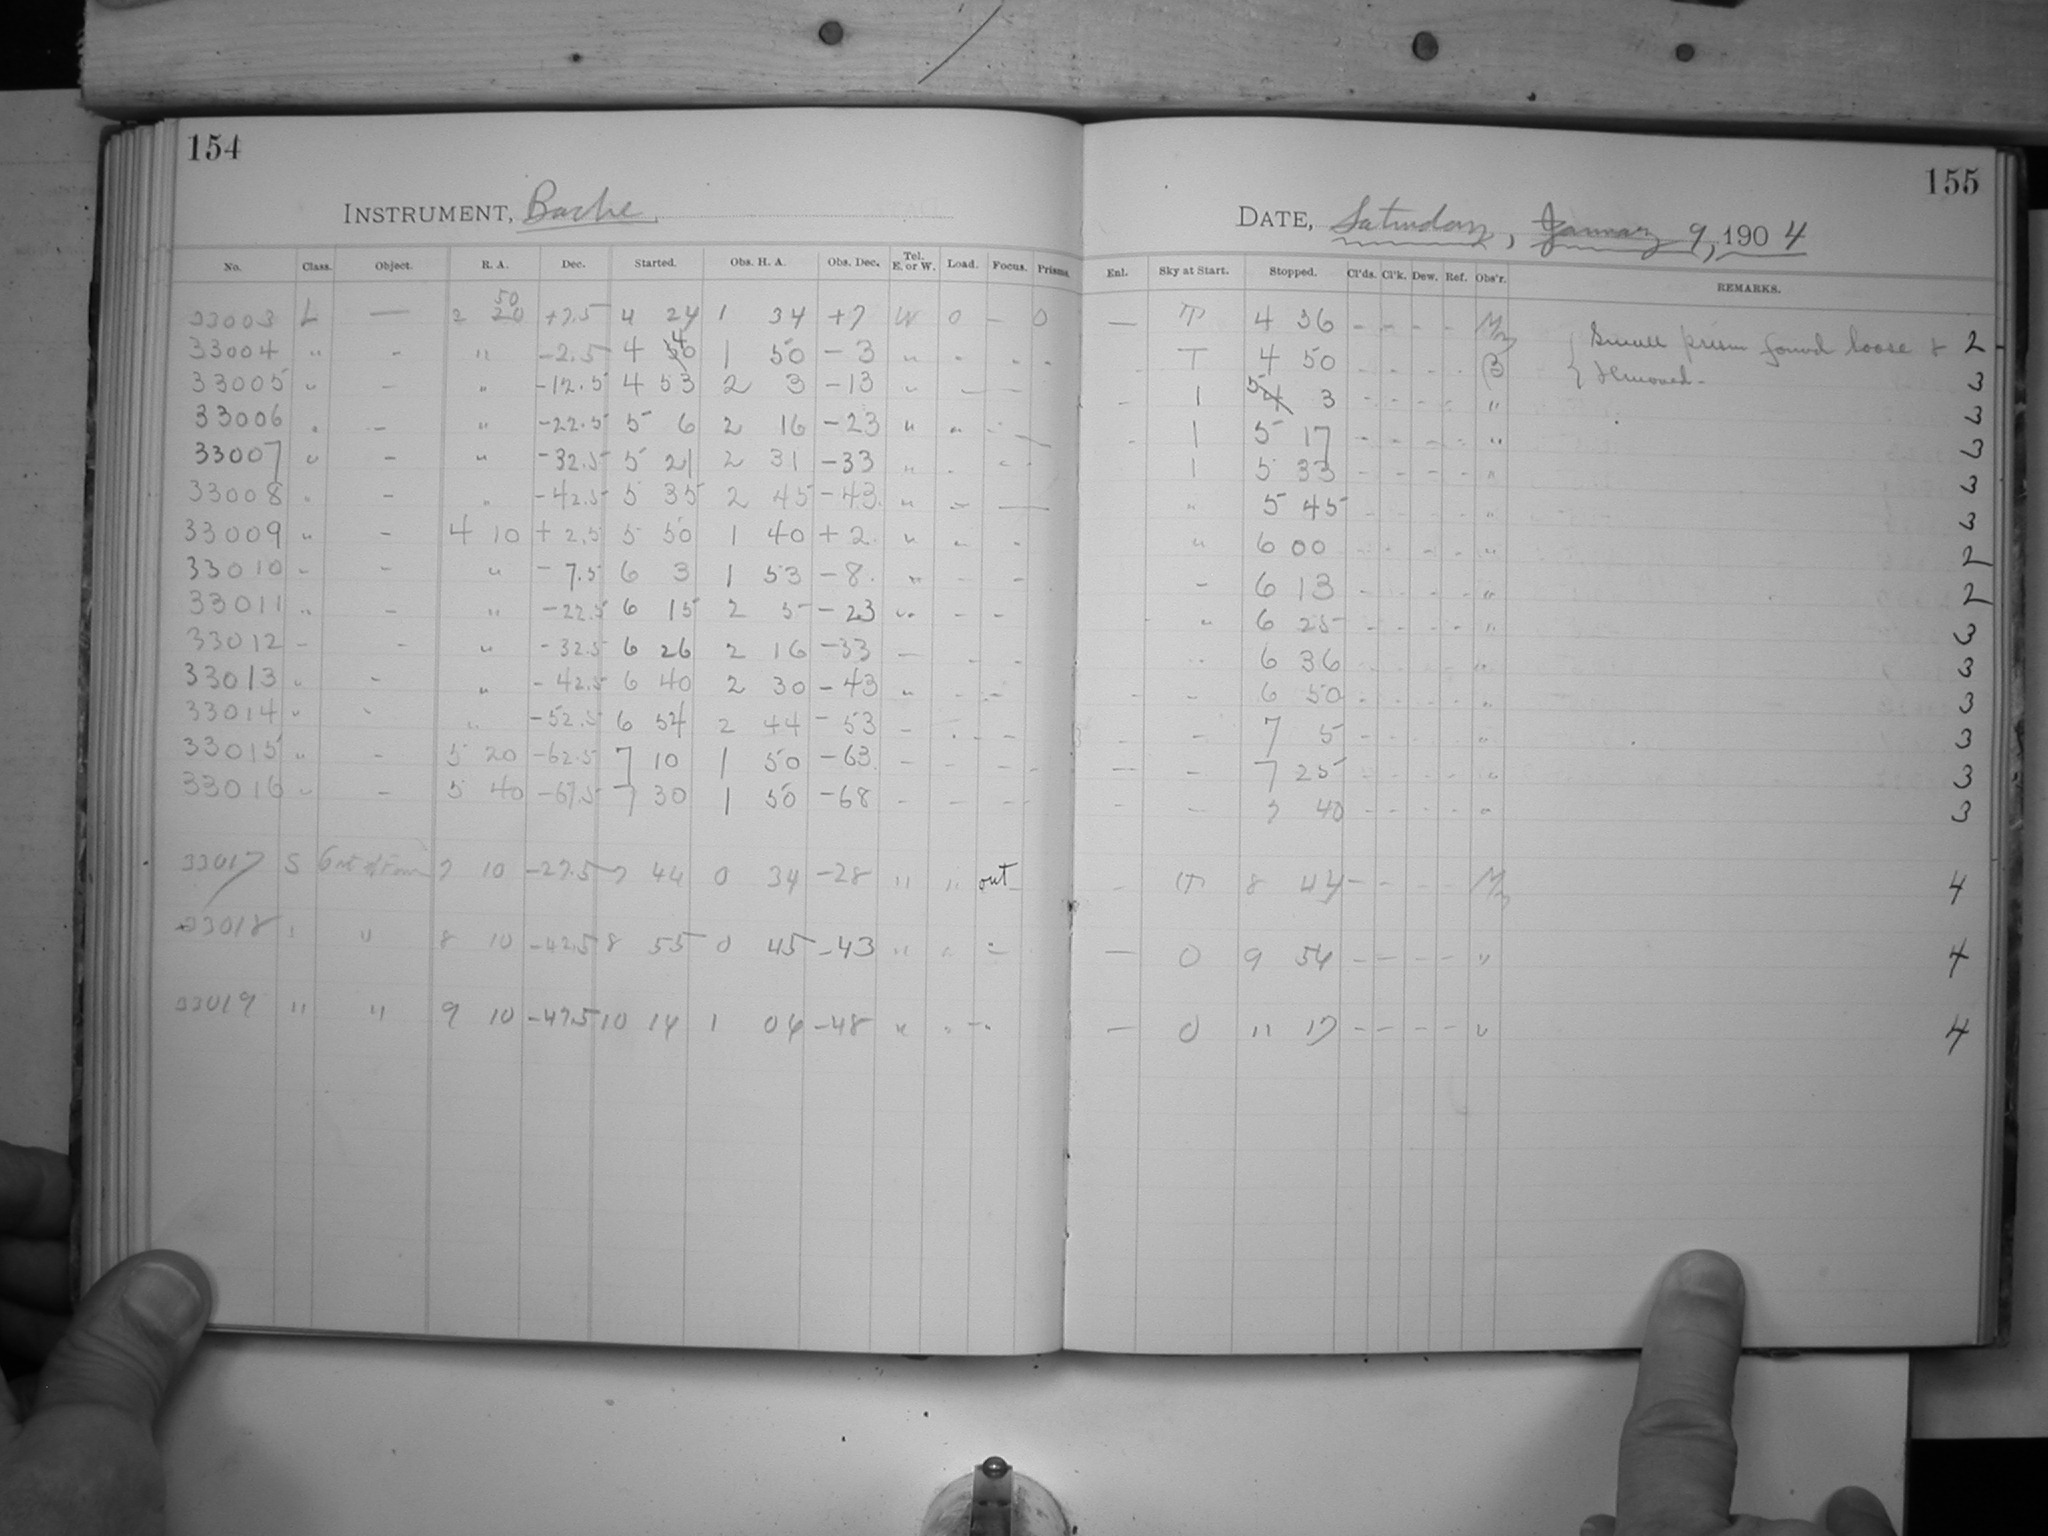 154
155
INSTRUMENT, Bache.
DATE, Saturday, January 9, 1904
No. Class. Object. R. A. Dec. Started. Obs. H. A. Obs. Dec. Tel. E. or W. Load. Focus. Prisms. Enl. Sky at Start. Stopped. Cl'ds. Cl'k. Dew. Ref. Obs'r. REMARKS.
33003 L — 2 50 20 +7.5 4 24 1 34 +7 W 0 - 0 — T 4 36 - - - - Small prism found loose & 2
33004 " - " -2.5 4 40 1 50 -3 " T 4 50 - - - - B removed. 3
33005 " - " -12.5 4 53 2 3 -13 " - 1 5 3 - - - - " 3
33006 " - " -22.5 5 6 2 16 -23 " - 1 5 17 - - - - " 3
33007 " - " -32.5 5 21 2 31 -33 " - 1 5 33 - - - - " 3
33008 " - " -42.5 5 35 2 45 -43 " - " 5 45 - - - - " 3
33009 " - 4 10 +2.5 5 50 1 40 +2 " - - " 6 00 - - - - " 2
33010 " - " -7.5 6 3 1 53 -8 " - - - 6 13 - - - - " 2
33011 " - " -22.5 6 15 2 5 -23 " - - " 6 25 - - - - " 3
33012 - - " -32.5 6 26 2 16 -33 - - - " 6 36 - - - - " 3
33013 " - " -42.5 6 40 2 30 -43 " - - - - 6 50 - - - - " 3
33014 " - " -52.5 6 54 2 44 -53 - - - - - 7 5 - - - - " 3
33015 " - 5 20 -62.5 7 10 1 50 -63 - - - - — - 7 25 - - - - " 3
33016 " - 5 40 -67.5 7 30 1 50 -68 - - - - - 7 40 - - - - " 3
33017 S Out of Focus 7 10 -27.5 7 44 0 34 -28 " " out - T 8 44 - - - - 4
33018 " " 8 10 -42.5 8 55 0 45 -43 " " - — 0 9 54 - - - - " 4
33019 " " 9 10 -47.5 10 14 1 04 -48 " " - — 0 11 17 - - - - " 4